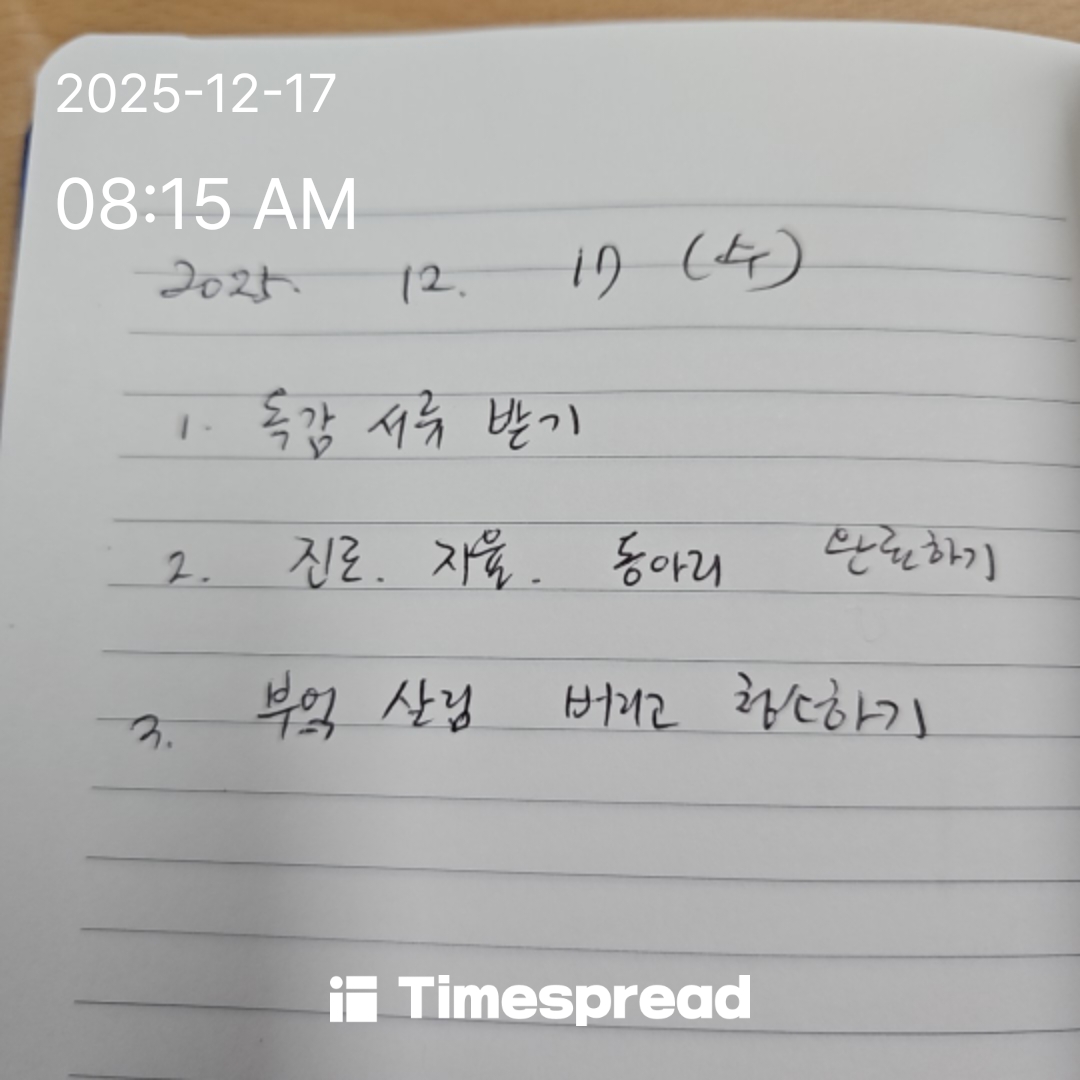 2025-12-17
08:15 AM
2025. 12. 17 (수)
1. 독감 서류 받기
2. 진로. 자율. 동아리 완료하기
3. 부엌 살림 버리고 청소하기
Timespread